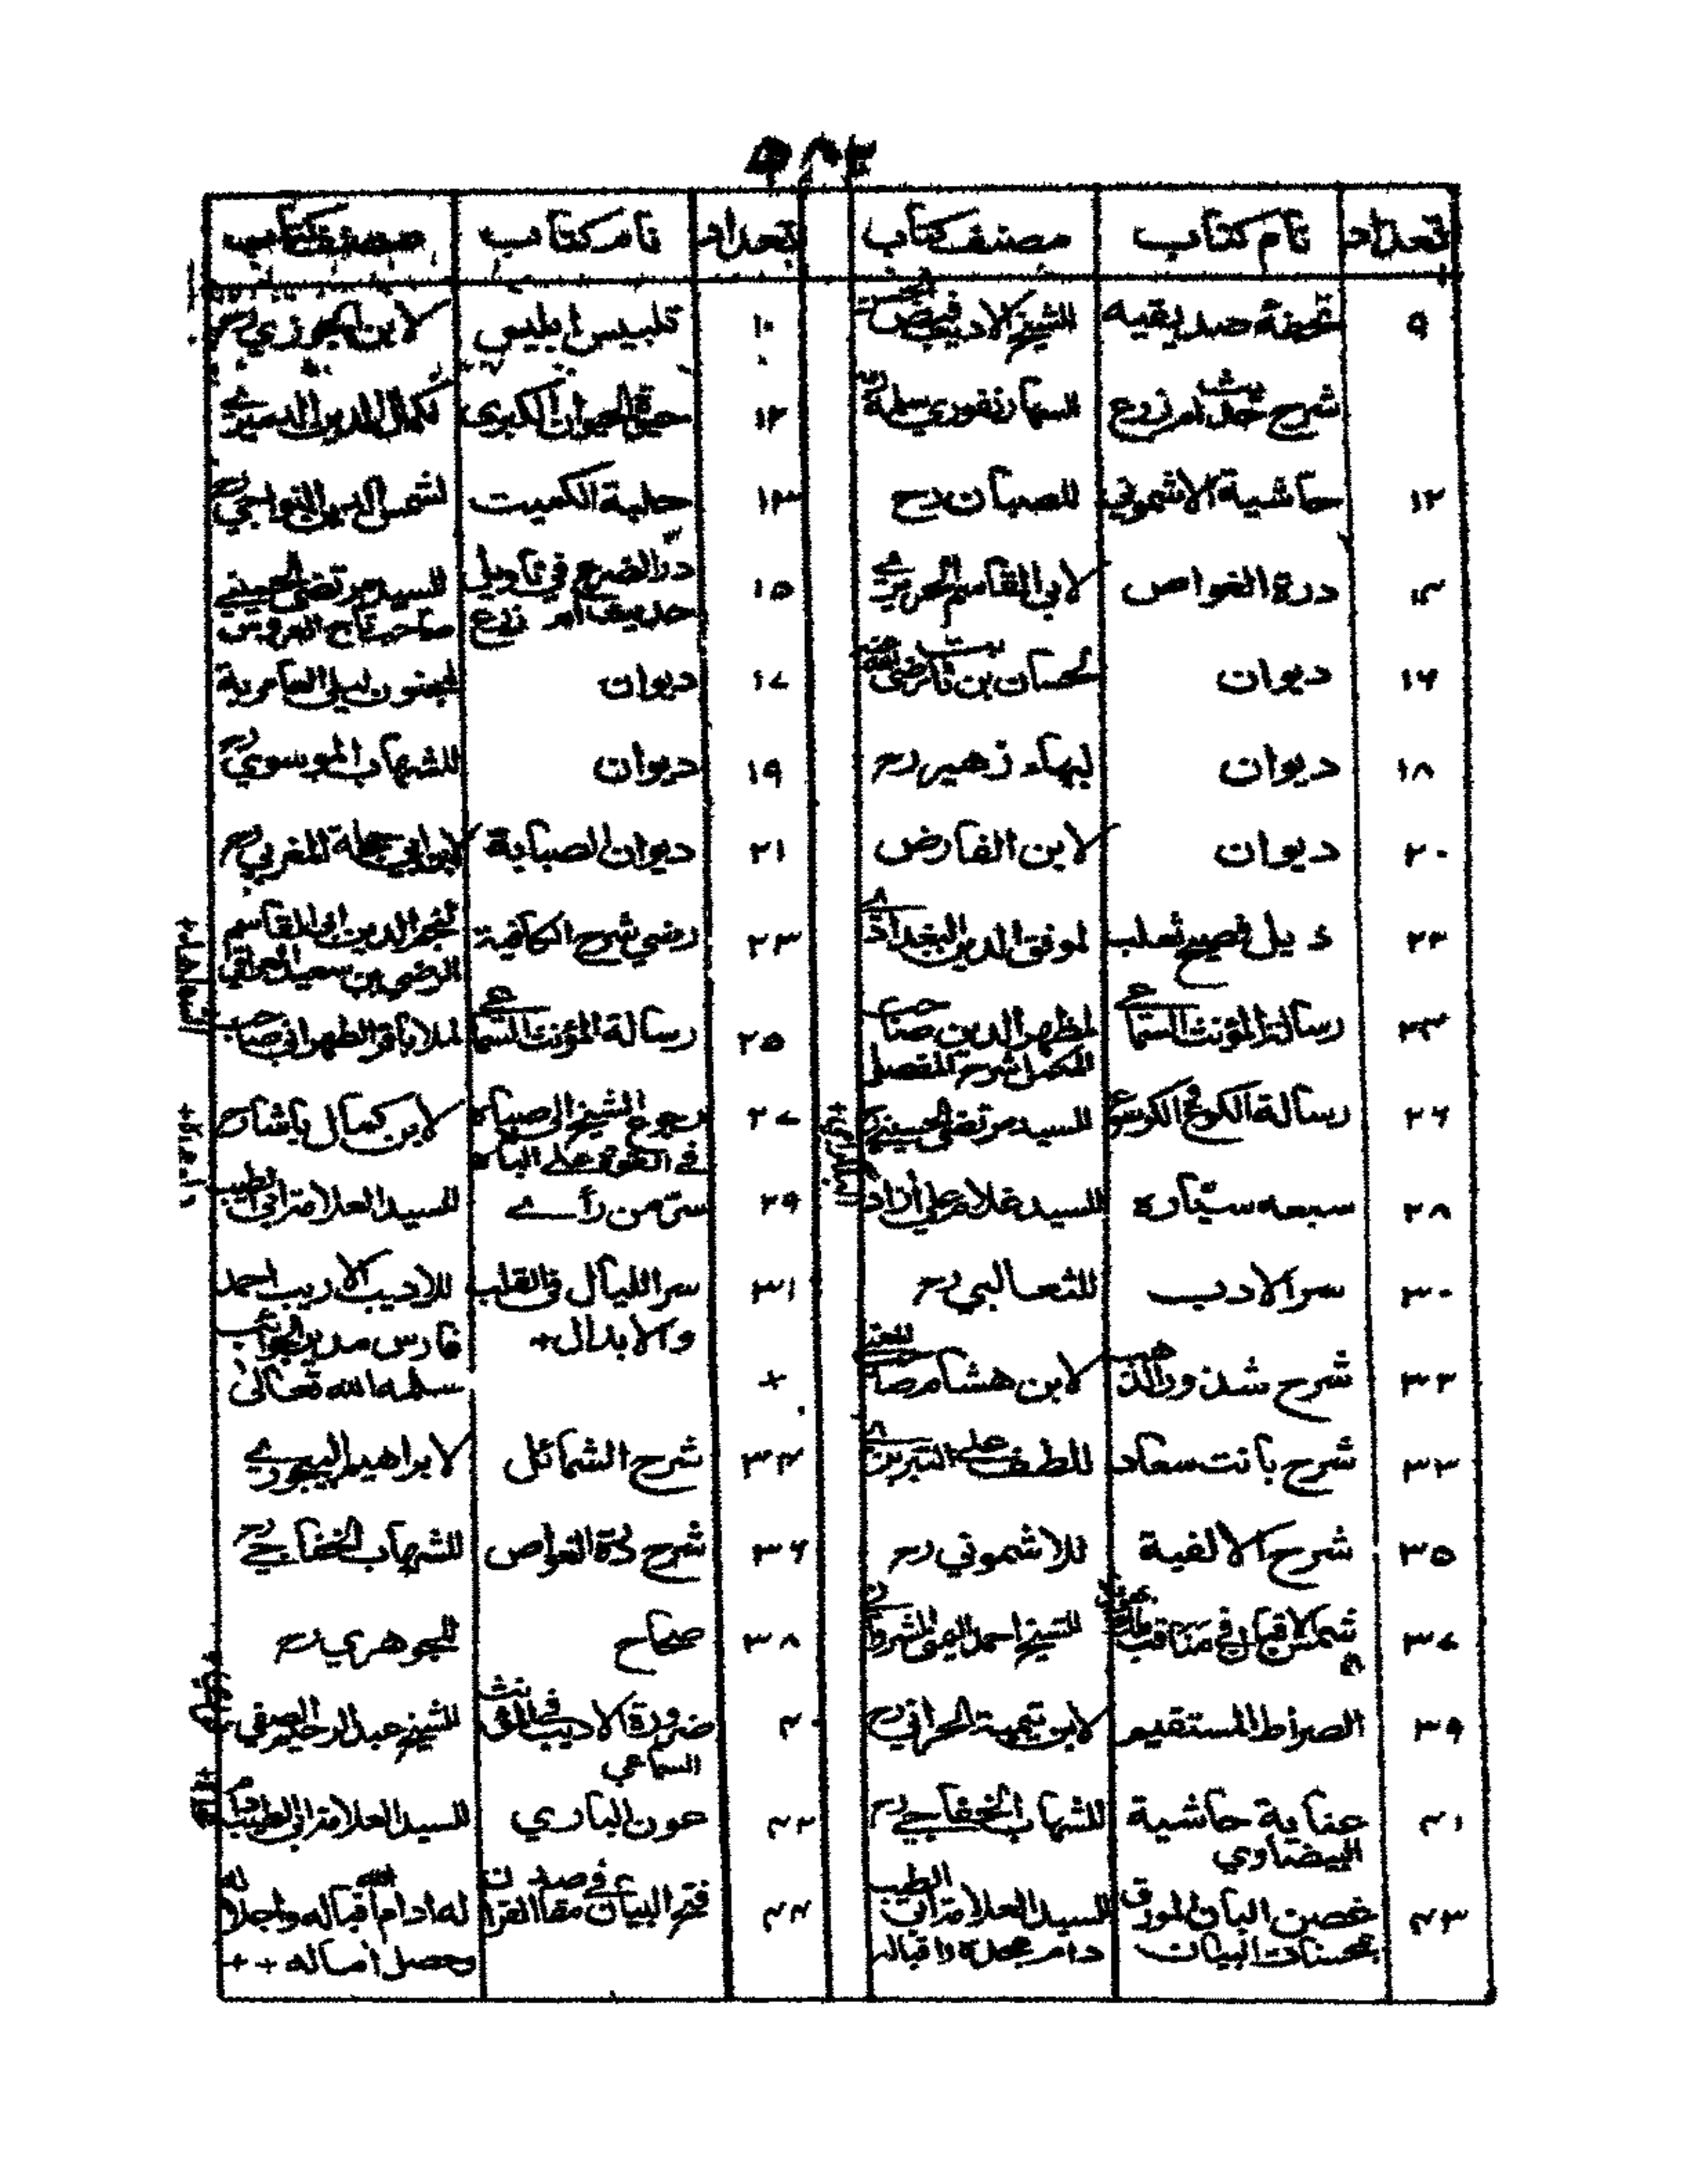 تعداد نام كتاب مصنف كتاب تعداد نام كتاب مصنف كتاب
٩ تحفة صديقيه للشيخ الاديب فيض الحسن ١٠ تلبيس ابليس لابن الجوزي رح
شرح حديث ام زرع السهارنفوري سلمه الله ١٢ حيوة الحيوان الكبرى لكمال الدين الدميري
١٢ حاشية الاشموني للصبان رح ١٣ حلبة الكميت لشمس الدين النواجي رح
١٤ درة الغواص لابي القاسم الحريري ١٥ در الضرع في تاويل حديث ام زرع للسيد مرتضى الحسيني صاحب تاج العروس
١٦ ديوان لحسان بن ثابت رضي الله عنه ١٧ ديوان لمجنون ليلى العامرية
١٨ ديوان لبهاء زهير رح ١٩ ديوان للشهاب الموسوي رح
٢٠ ديوان لابن الفارض ٢١ ديوان الصبابة لابن ابي حجلة المغربي رح
٢٢ ذيل فصيح ثعلب لموفق الدين البغدادي ٢٣ رضي شرح الكافية لنجم الدين ابي القاسم الرضي بن سعيد العراقي
٢٤ رسالة المؤنث السماعي لمظهر الدين صاحب المكمل شرح المفصل ٢٥ رسالة المؤنث السماعي لملا باقر الطهراني صاحب
٢٦ رسالة الكوع الكرسوع للسيد مرتضى الحسيني ٢٧ رجوع الشيخ الى صباه في القوة على الباه لابن كمال پاشا رح
٢٨ سبعه سيّاره للسيد غلام علي ازاد ٢٩ سرّ من رأے للسيد العلامة ابي الطيب
٣٠ سر الادب للثعالبي رح ٣١ سر الليال في القلب والابدال + للاديب الاريب احمد فارس مدير الجوائب سلمه الله تعالى
٣٢ شرح شذور الذهب لابن هشام صاحب المغني +
٣٣ شرح بانت سعاد للطف علي التبريزي ٣٤ شرح الشمائل لابراهيم البيجوري
٣٥ شرح الالفية للاشموني رح ٣٦ شرح درة الغواص للشهاب الخفاجي رح
٣٧ شمس الاقبال في مناقب ملك للشيخ احمد اليمني الشرواني ٣٨ صحاح للجوهري رح
٣٩ الصراط المستقيم لابن تيمية الحراني رح ٤٠ ضرورة الاديب في المؤنث السماعي للشيخ عبد الرحيم الصفي
٤١ عناية حاشية البيضاوي للشهاب الخفاجي رح ٤٢ عون الباري للسيد العلامة ابي الطيب
٤٣ غصن البان المورق بمحسنات البيان للسيد العلامة ابي الطيب دام مجده واقباله ٤٤ فتح البيان في مقاصد القران له ادام الله اقباله واجلاله وحصل أماله + +